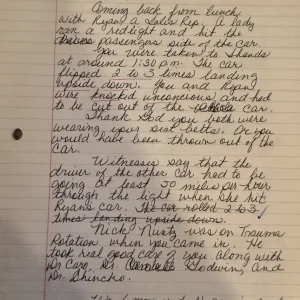 Coming back from lunch
with Ryan, a Sales Rep, a lady
ran a red light and hit the
drivers passengers side of the car.
You were taken to Shands
at around 1:30 p.m. The car
flipped 2 to 3 times landing
upside down. You and Ryan
were knocked unconscious and had
to be cut out of the car.
Thank God you both were
wearing your seat belts. Or you
would have been thrown out of the
car.
Witnesses say that the
driver of the other car had to be
going at least 50 miles per hour
through the light when she hit
Ryan's car. The car rolled 2 to 3
times landing upside down.
Nick Nuntz was on Trauma
Rotation when you came in. He
took real good care of you along with
Dr. Caro, Dr. Godwin, and
Dr. Shincko.